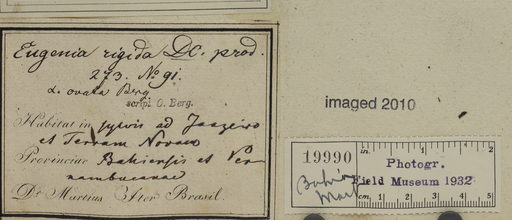 Eugenia rigida DC. prod.
273. No 91.
α. ovata Berg
scrips. O. Berg.
Habitat in sylvis ad Joazeiro
et Terram Novam
Provinciae Bahiensis et Per-
nambucanae
Dr Martius Iter Brasil.
imaged 2010
19990
Photogr.
Field Museum 1932
Bahia
Mart
in. 1 2
cm. 1 2 3 4 5